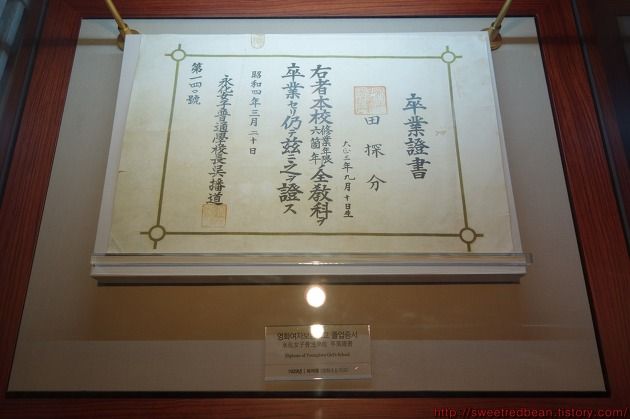 卒業證書
田 揬 分
大正三年九月十日生
右者本校修業年限六箇年ノ全教科ヲ
卒業セリ仍テ茲ニ之ヲ證ス
昭和四年三月二十日
永化女子普通學校長吳播道
第一四〇號
영화여자보 졸업증서
永化女子普通学校 卒業證書
Diploma of Younghwa Girl's School
http://sweetredbean.tistory.com/